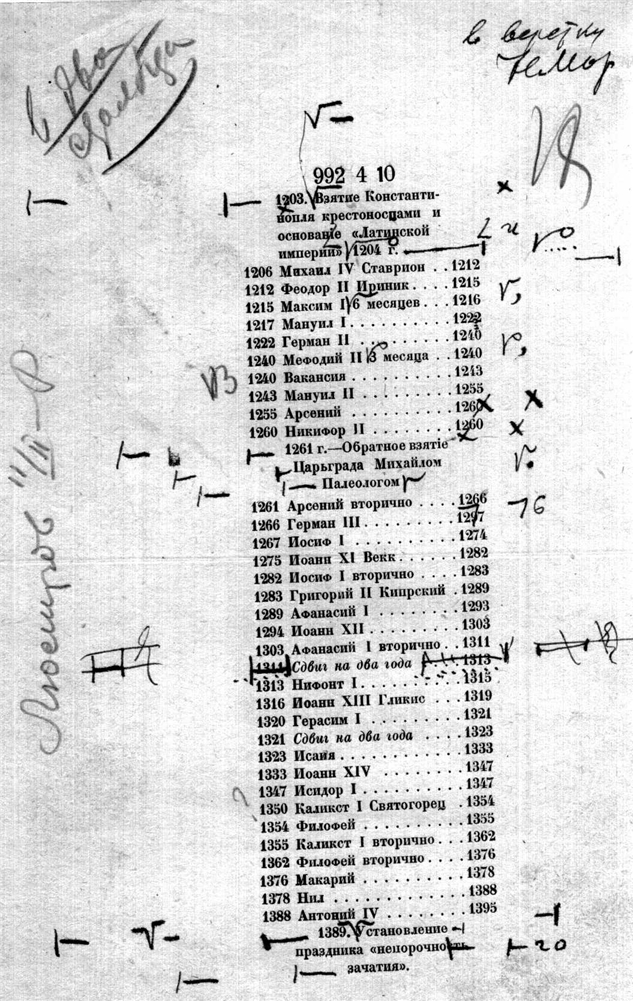 в две
столбца
в верстку
НМор
992 4 10
1203. Взятие Константи-
нопля крестоносцами и
основание «Латинской
империи» 1204 г.
1206 Михаил IV Ставрион . . 1212
1212 Феодор II Ириник . . . . 1215
1215 Максим I 6 месяцев . . . 1216
1217 Мануил I . . . . . . . . . . 1222
1222 Герман II . . . . . . . . . 1240
1240 Мефодий II 3 месяца . . 1240
1240 Вакансия . . . . . . . . . 1243
1243 Мануил II . . . . . . . . . 1255
1255 Арсений . . . . . . . . . . 1260
1260 Никифор II . . . . . . . . 1260
1261 г.—Обратное взятіе
Царьграда Михайлом
Палеологом
1261 Арсений вторично . . . . 1266
1266 Герман III . . . . . . . . . 1297
76
1267 Иосиф I . . . . . . . . . . 1274
1275 Иоанн XI Векк . . . . . . 1282
1282 Иосиф I вторично . . . . 1283
1283 Григорий II Кипрский . 1289
1289 Афанасий I . . . . . . . . 1293
1294 Иоанн XII . . . . . . . . . 1303
1303 Афанасий I вторично . . 1311
1311 Сдвиг на два года 1313
1313 Нифонт I . . . . . . . . . 1315
1316 Иоанн XIII Гликис . . . 1319
1320 Герасим I . . . . . . . . . 1321
1321 Сдвиг на два года . . . . 1323
1323 Исаия . . . . . . . . . . . 1333
1333 Иоанн XIV . . . . . . . . 1347
1347 Исидор I . . . . . . . . . . 1347
1350 Каликст I Святогорец . 1354
1354 Филофей . . . . . . . . . 1355
1355 Каликст I вторично . . . 1362
1362 Филофей вторично . . . . 1376
1376 Макарий . . . . . . . . . . 1378
1378 Нил . . . . . . . . . . . . 1388
1388 Антоний IV . . . . . . . . 1395
1389. Установление
праздника «непорочность
20
зачатия».